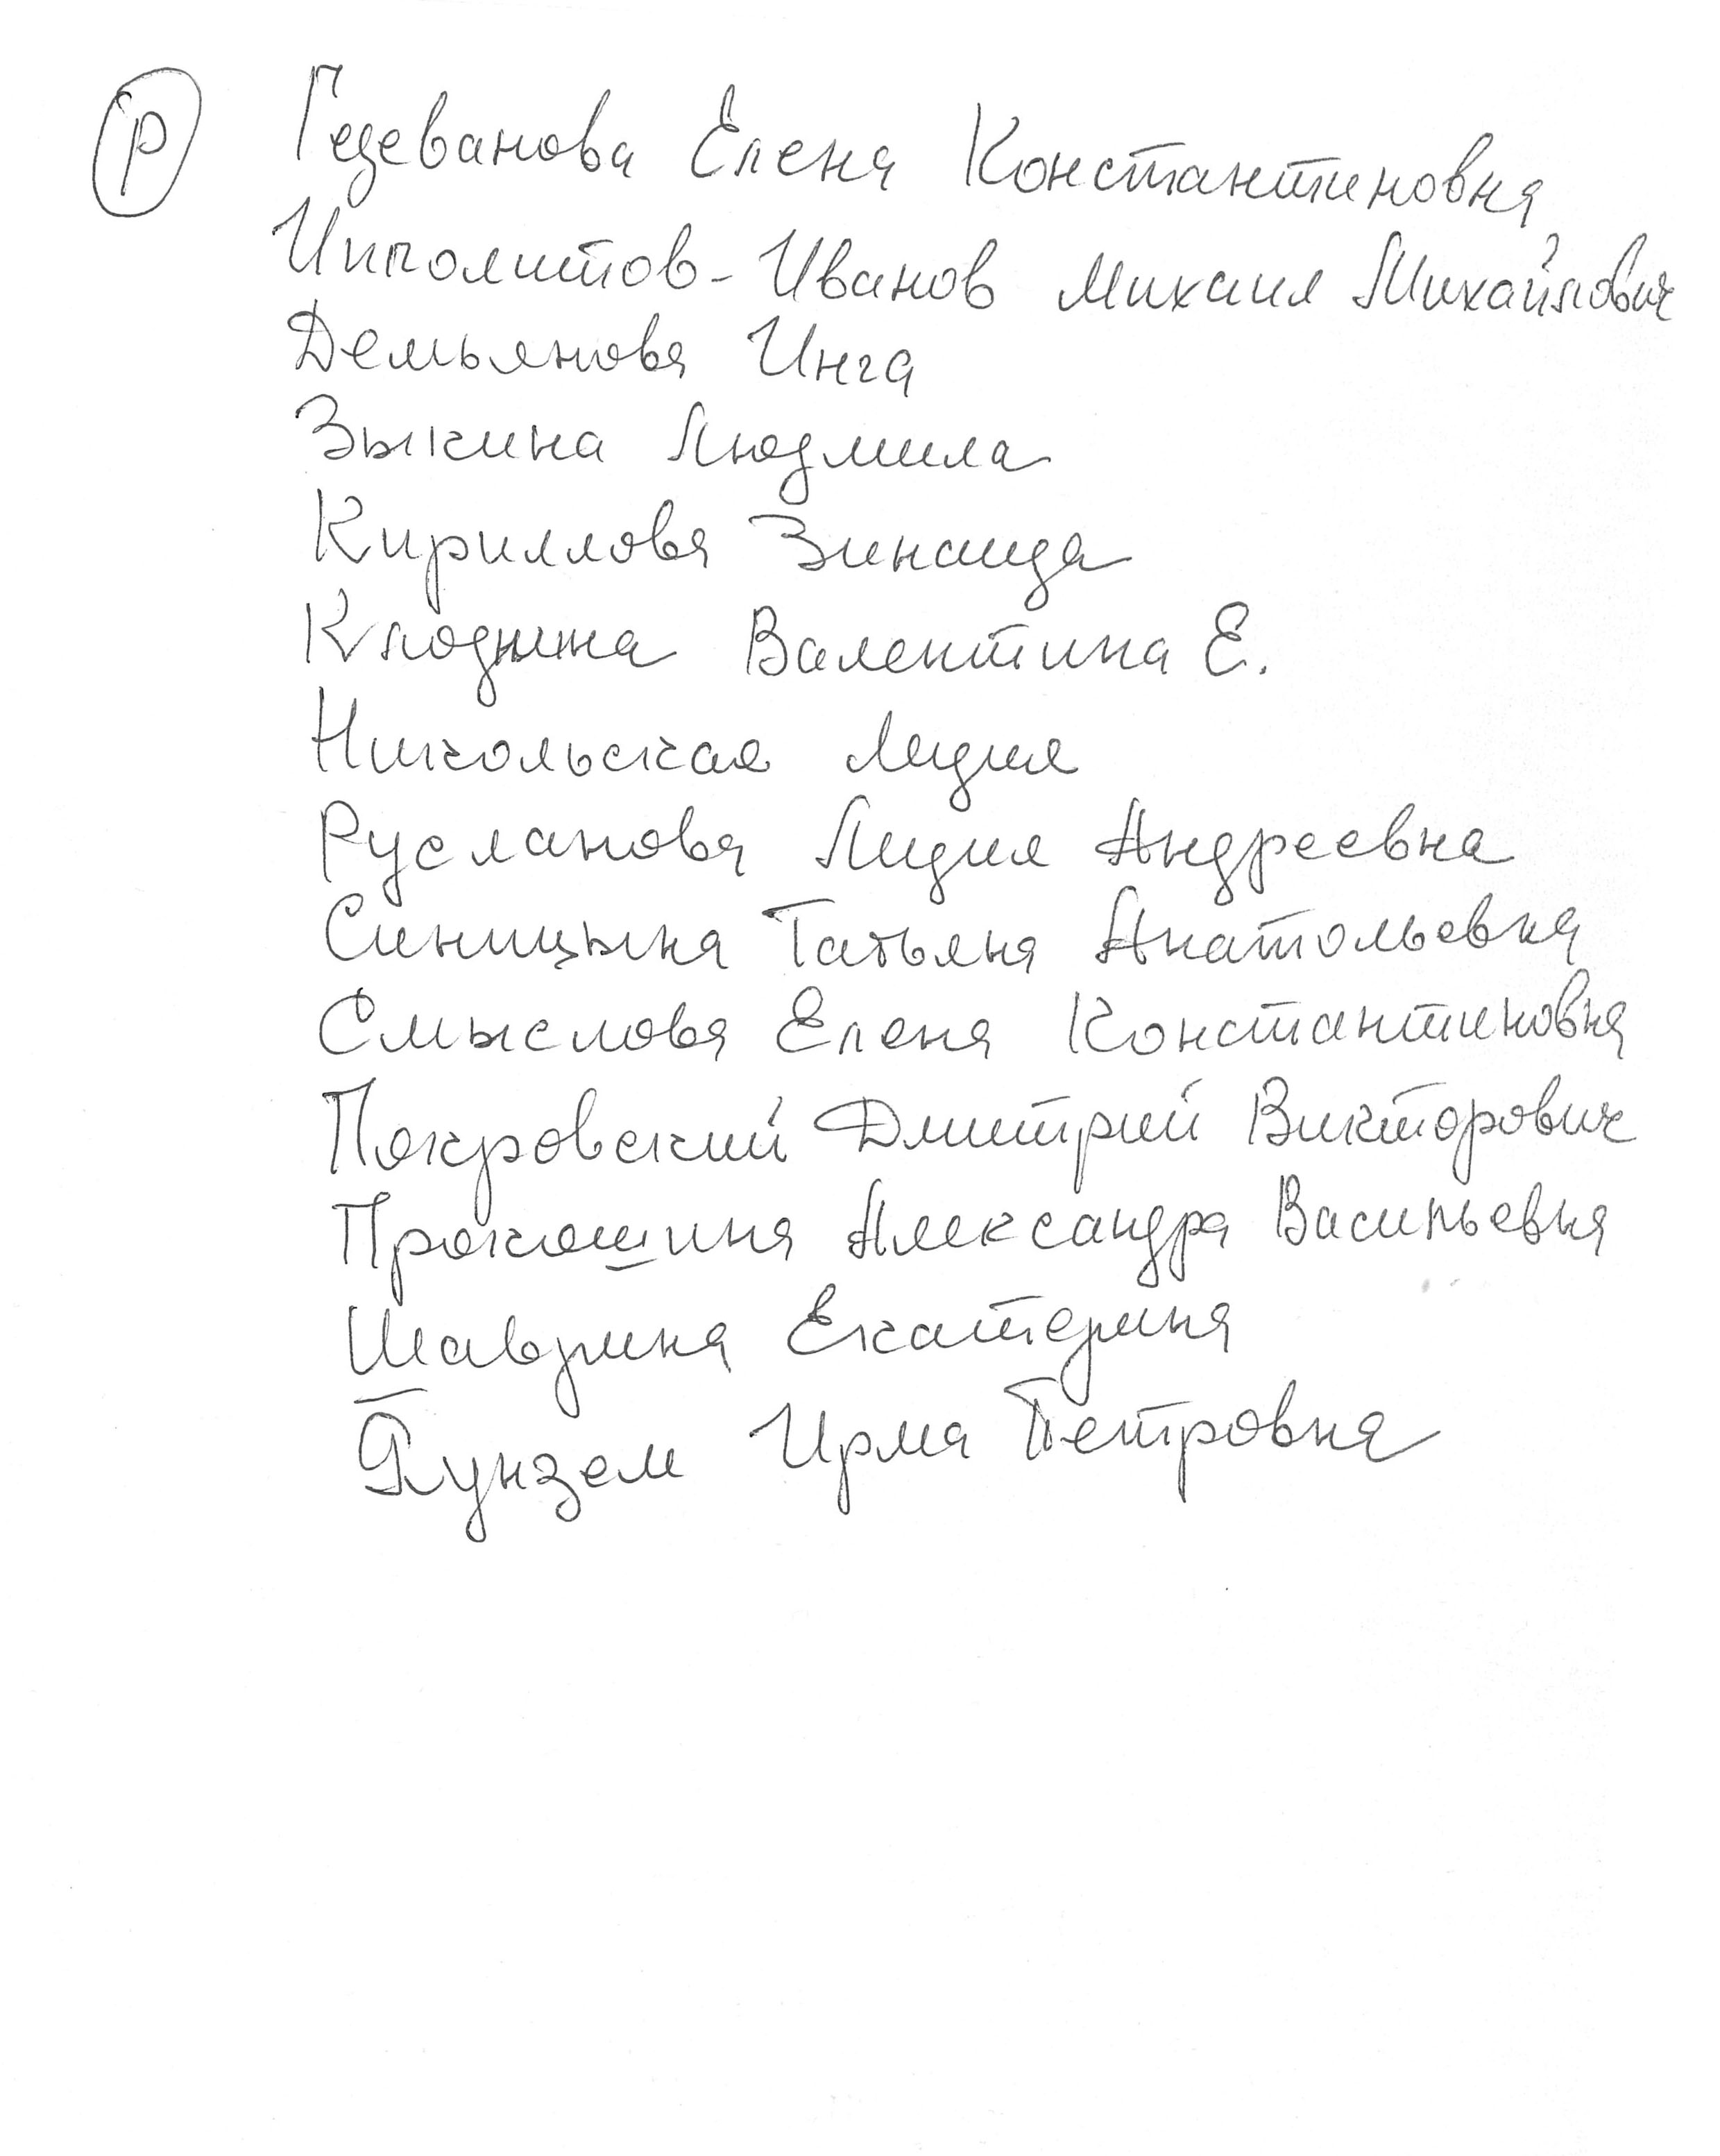 Р Гедеванова Елена Константиновна
Ипполитов-Иванов Михаил Михайлович
Демьянова Инга
Зыкина Людмила
Кириллова Зинаида
Клоднина Валентина Е.
Никольская Лидия
Русланова Лидия Андреевна
Синицына Татьяна Анатольевна
Смыслова Елена Константиновна
Покровский Дмитрий Викторович
Прокошина Александра Васильевна
Шаврина Екатерина
Ирма Петровна